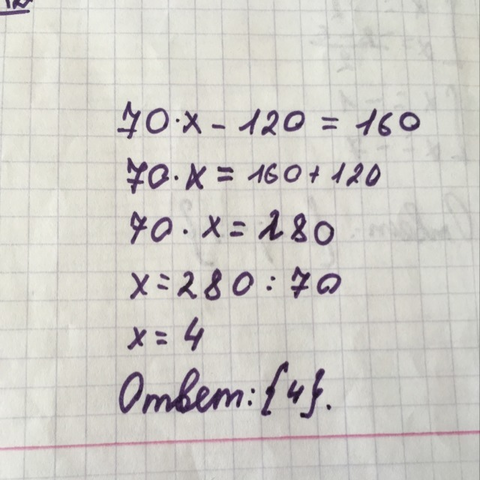 70·x - 120 = 160
70·x = 160 + 120
70·x = 280
x = 280 : 70
x = 4
Ответ: {4}.